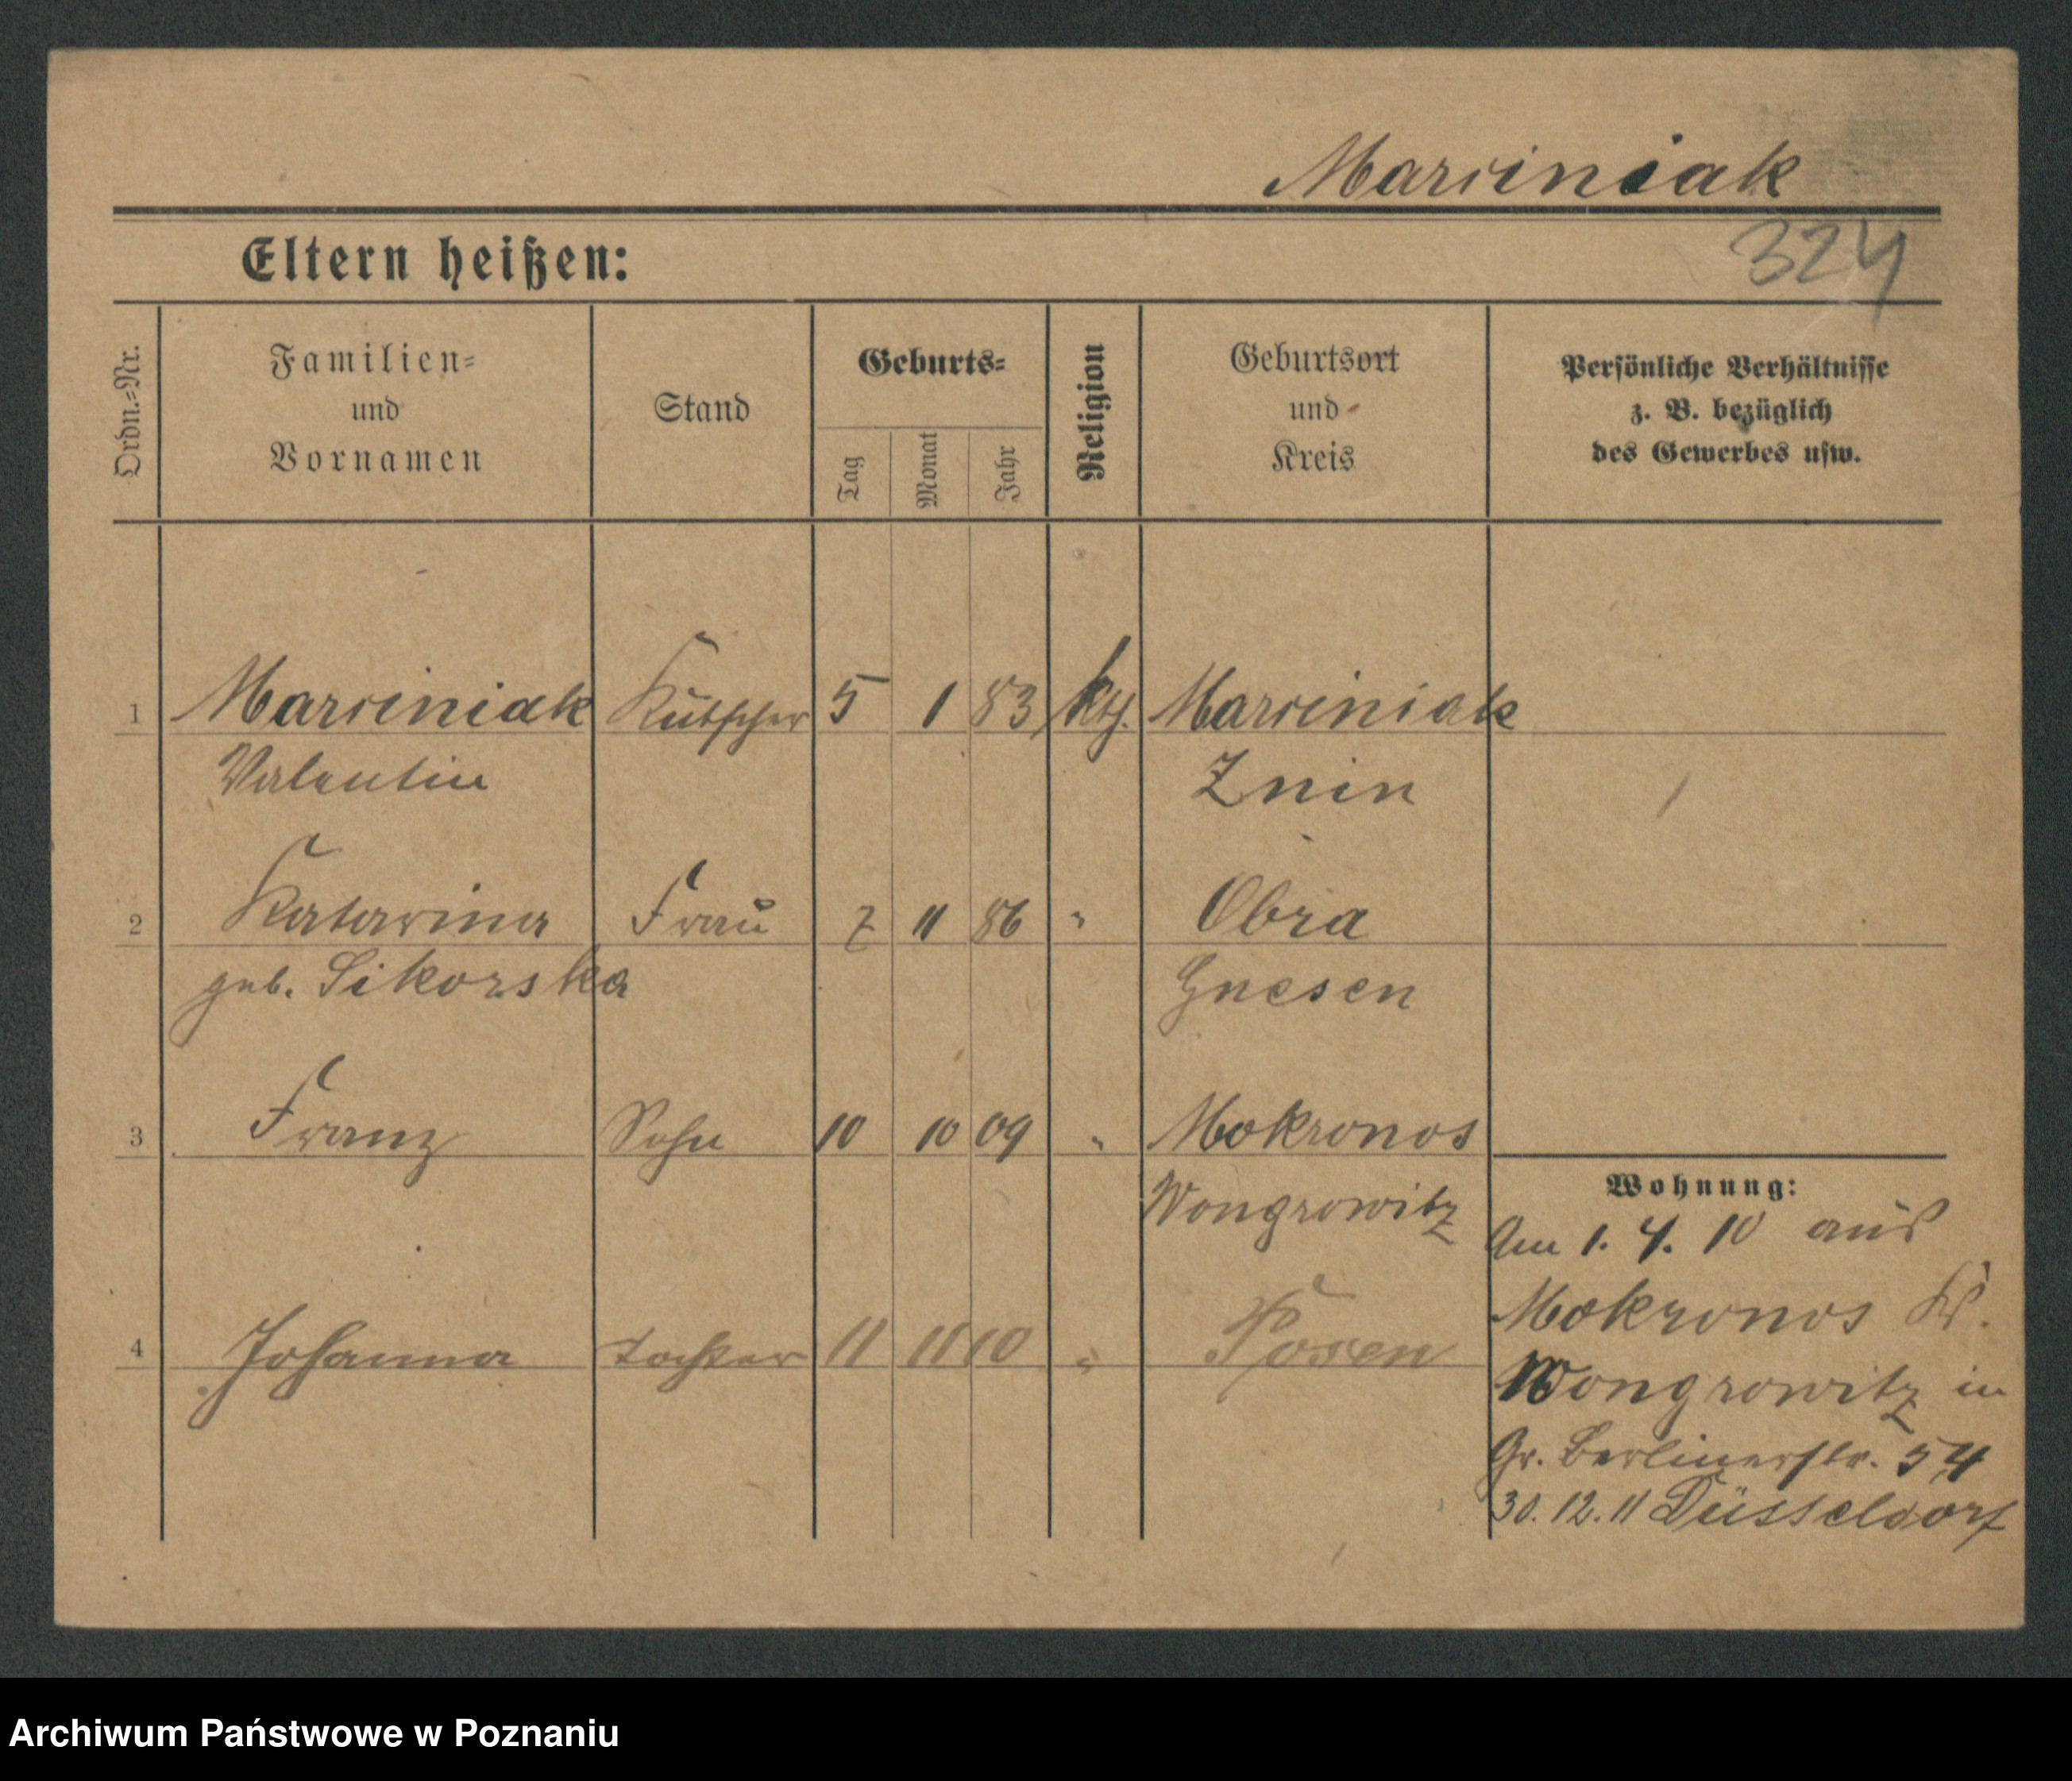 Marciniak
324
Eltern heißen:
Ordn.-Nr.
Familien-
und
Vornamen
Stand
Geburts-
Tag
Monat
Jahr
Religion
Geburtsort
und
Kreis
Persönliche Verhältnisse
z. B. bezüglich
des Gewerbes usw.
1 Marciniak Kutscher 5 1 83 kth. Marciniak
Valentin Znin
2 Katarina Frau 7 11 86 " Obra
geb. Sikorska Gnesen
3 Franz Sohn 10 10 09 " Mokronos
Wongrowitz
Wohnung:
Am 1. 4. 10 aus
Mokronos Kr.
Wongrowitz in
Gr. Berlinerstr. 54
30. 12. 11 Düsseldorf
4 Johanna Tochter 11 11 10 " Posen
Archiwum Państwowe w Poznaniu